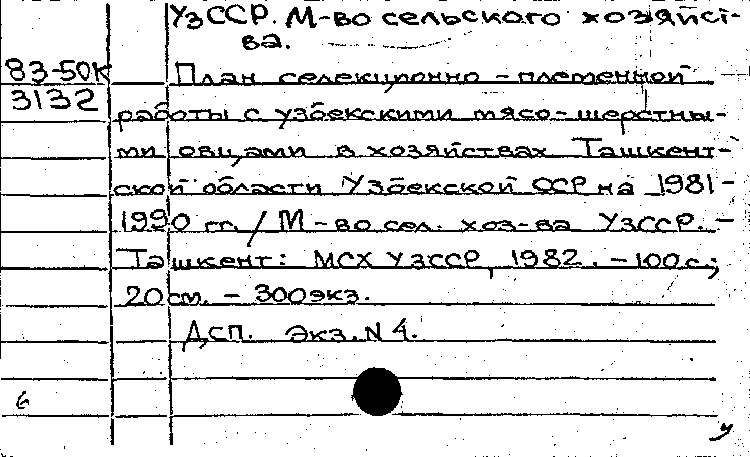 УзССР. М-во сельского хозяйст-
ва.
83-50К План селекционно-племенной
3132 работы с узбекскими мясо-шерстны-
ми овцами в хозяйствах Ташкент-
ской области Узбекской ССР на 1981-
1990 гг. / М-во сел. хоз-ва УзССР. -
Ташкент: МСХ УзССР, 1982. - 100 с.;
20 см. - 300 экз.
ДСП. Экз. N 4.
6
у